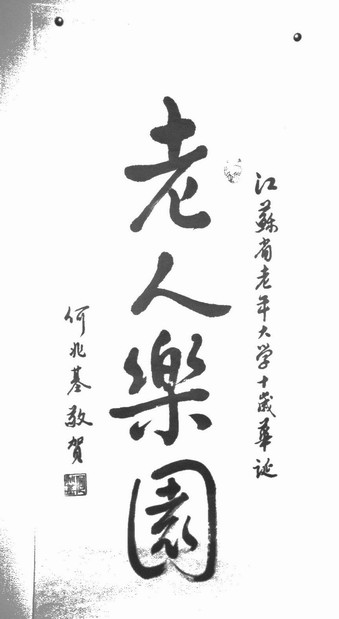 江蘇省老年大学十歲華诞
老人樂園
何兆基敬賀